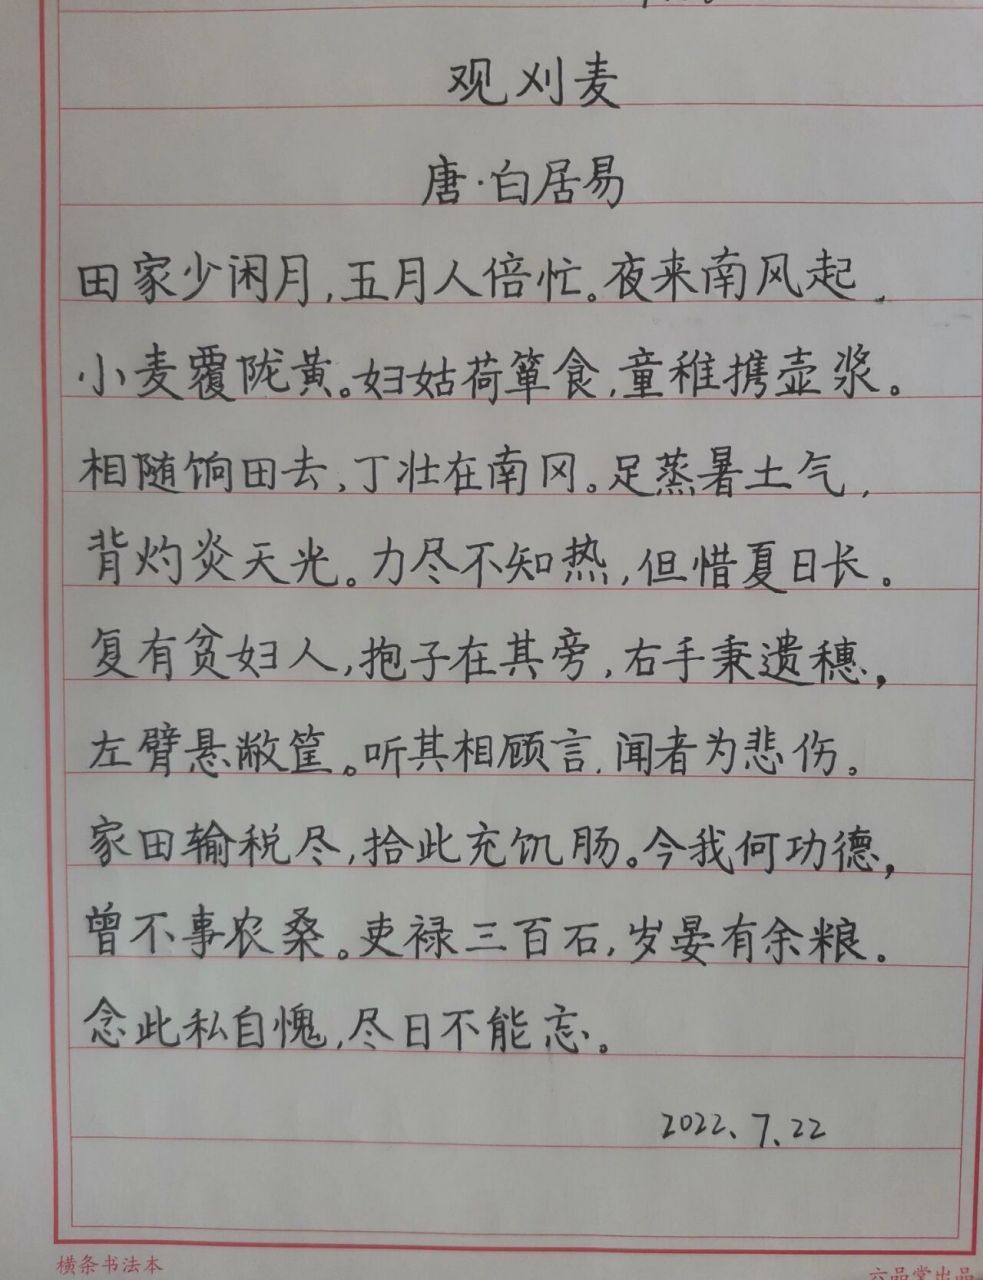 观刈麦
唐·白居易
田家少闲月,五月人倍忙。夜来南风起,
小麦覆陇黄。妇姑荷箪食,童稚携壶浆。
相随饷田去,丁壮在南冈。足蒸暑土气,
背灼炎天光。力尽不知热,但惜夏日长。
复有贫妇人,抱子在其旁,右手秉遗穗,
左臂悬敝筐。听其相顾言,闻者为悲伤。
家田输税尽,拾此充饥肠。今我何功德,
曾不事农桑。吏禄三百石,岁晏有余粮。
念此私自愧,尽日不能忘。
2022、7、22
横条书法本
六品堂出品